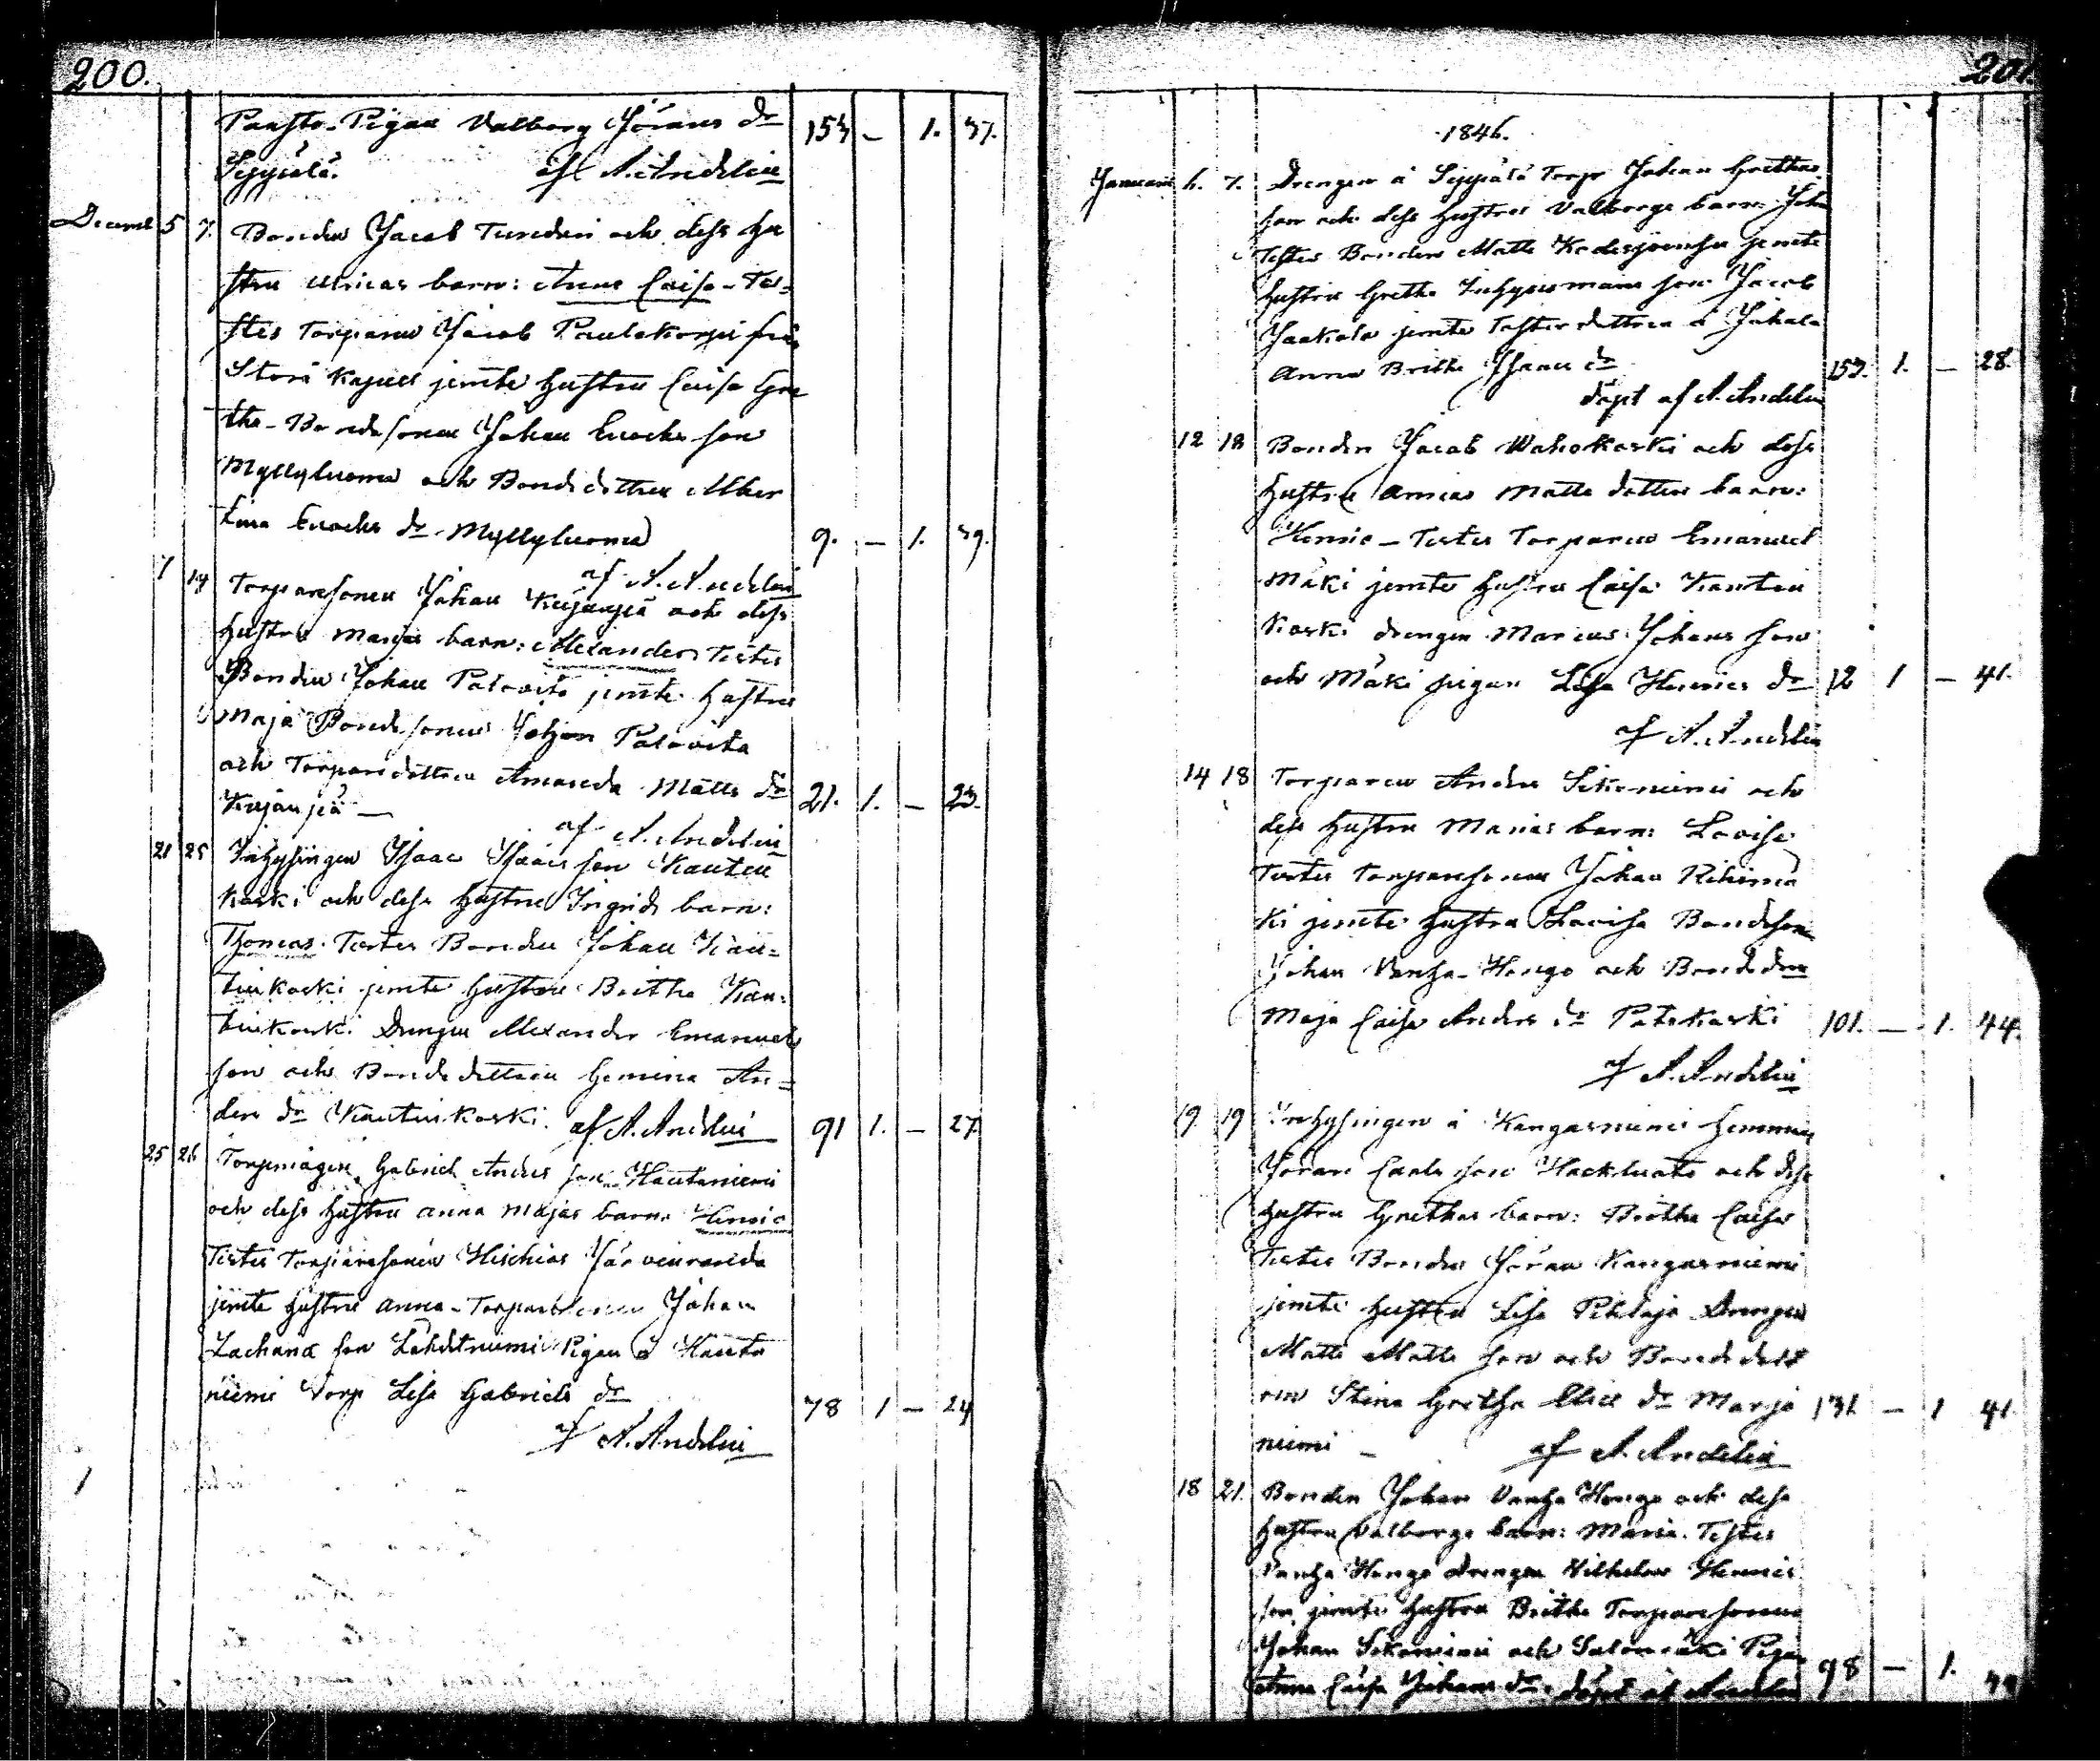 200.
Pansto-Pigan Valborg Jörans dr 153 – 1. 37.
Seppälä. af A. Andelin
Decemb 5 7. Bonden Jacob Tunderi och dess hu
stru Ulricas barn: Anna Caisa – Tes-
tes Torparen Jacob Paulakorpi från
Storå Kapell jemte hustru Caisa Gre
tha – Bondesonen Johan Enochs son
Myllyluoma och Bondedottren Alber
tina Enochs dr Myllyluoma 9. – 1. 39.
af A. Andelin
7 14 Torparesonen Johan Kujanpä och dess
hustru Marjas barn: Alexander Testes
Bonden Johan Palovita jemte hustru
Maja Bondesonen Johan Palovita
och Torparedottren Amanda Matts dr
Kujanpä – 21. 1. – 23.
af A. Andelin
21 25 Inhysingen Isaac Isaacs son Kauten
koski och dess hustru Ingrids barn:
Thomas. Testes Bonden Johan Kau-
tinkoski jemte hustru Britha Kau-
tinkoski Drengen Alexander Emanuels
son och Bondedottren Gemina An-
ders dr Kautinkoski. af A. Andelin 91 1. – 27.
25 26 Torpmågen Gabriel Anders son Hautaniemi
och dess hustru Anna Majas barn. Henric
Testes Torparesonen Hischias Järvenranda
jemte hustru Anna – Johan
Zachariæ son Pigan å Hauta
niemi Torp Lisa Gabriels dr 78 1 – 24
af A. Andelin
201.
1846.
Januari 6. 7. Drengen å Seppälä Torp Johan Grethas
son och dess hustrus Valborgs barn: Joh
Testes Bonden Matts jemte
hustru Gretha Inhysesmans son Jacob
Jaakola jemte dottren å Jakala
Anna Britha Isaacs dr 153. 1. – 28.
döpt af A. Andelin
12 18 Bonden Jacob Wahokoski och dess
hustru Annas Matts dotters barn:
Henric – Testes Torparen Emanuel
Mäki jemte hustru Caisa Kauten
koski drengen Marcus Johans son
och Mäki pigan Lisa Henrics dr 12 1 – 41.
af A. Andelin
14 18 Torparen Anders Sikoniemi och
dess hustru Marias barn: Lovisa
Testes Torparesonen Johan Riihimä
ki jemte hustru Lovisa Bondeson
Johan Vanha-Hongo och Bondedren
Maja Caisa Anders dr Palokoski 101. – 1. 44.
af A. Andelin
19. 19 Inhysingen å Kangasniemi hemman
Jöran Carls son Hackluoto och dess
hustru Grethas barn: Britha Caisa
Testes Bonden Jöran Kangasniemi
jemte hustru Lisa Pihlaja Drengen
Matts Matts son och Bondedott
ren Stina Gretha Elias dr Marja 131. – 1 41
niemi – af A. Andelin
18 21. Bonden Johan Vanha Hongo och dess
hustru Valborgs barn: Maria. Testes
Vanha Hongo drengen Wilhelm Henrics
son jemte hustru Britha Torparesonen
Johan Sikoniemi och Salomäki Pigan
Anna Caisa Johans dr. döpt af Andelin 98 – 1.